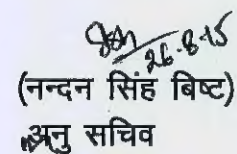 26-8-15
(नन्दन सिंह बिष्ट)
अनु सचिव